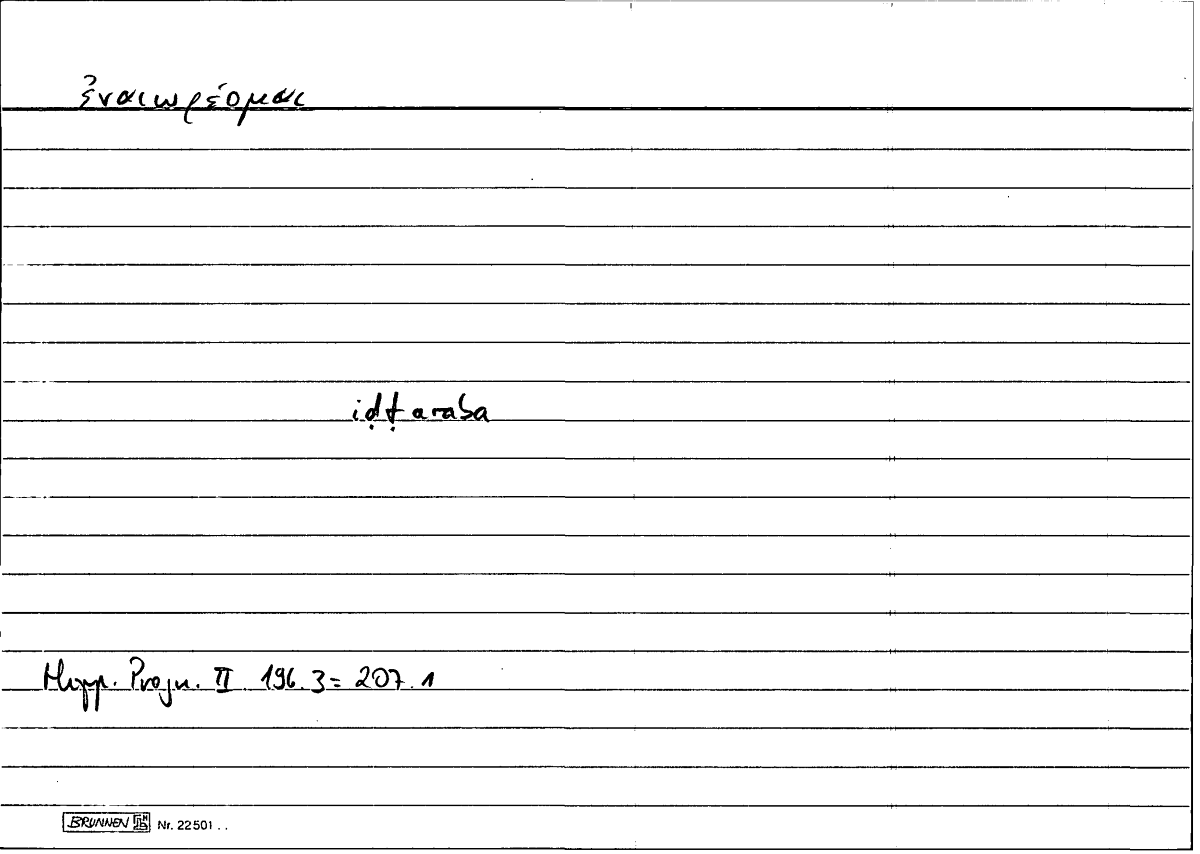 ἐναιωρέομαι
iḍṭaraba
Hipp. Progn. II 196.3 = 207.1
BRUNNEN Nr. 22501 . .